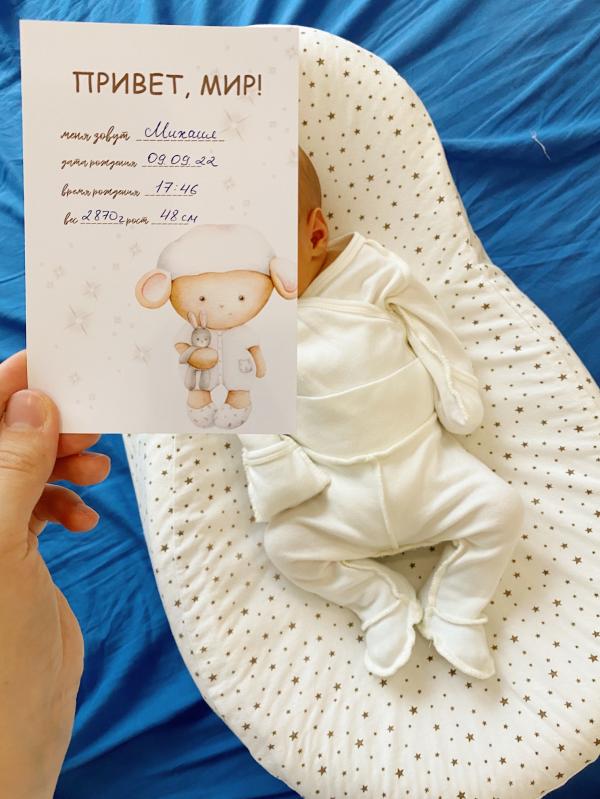 ПРИВЕТ, МИР!
меня зовут Михаил
дата рождения 09.09.22
время рождения 17:46
вес 2870г рост 48 см